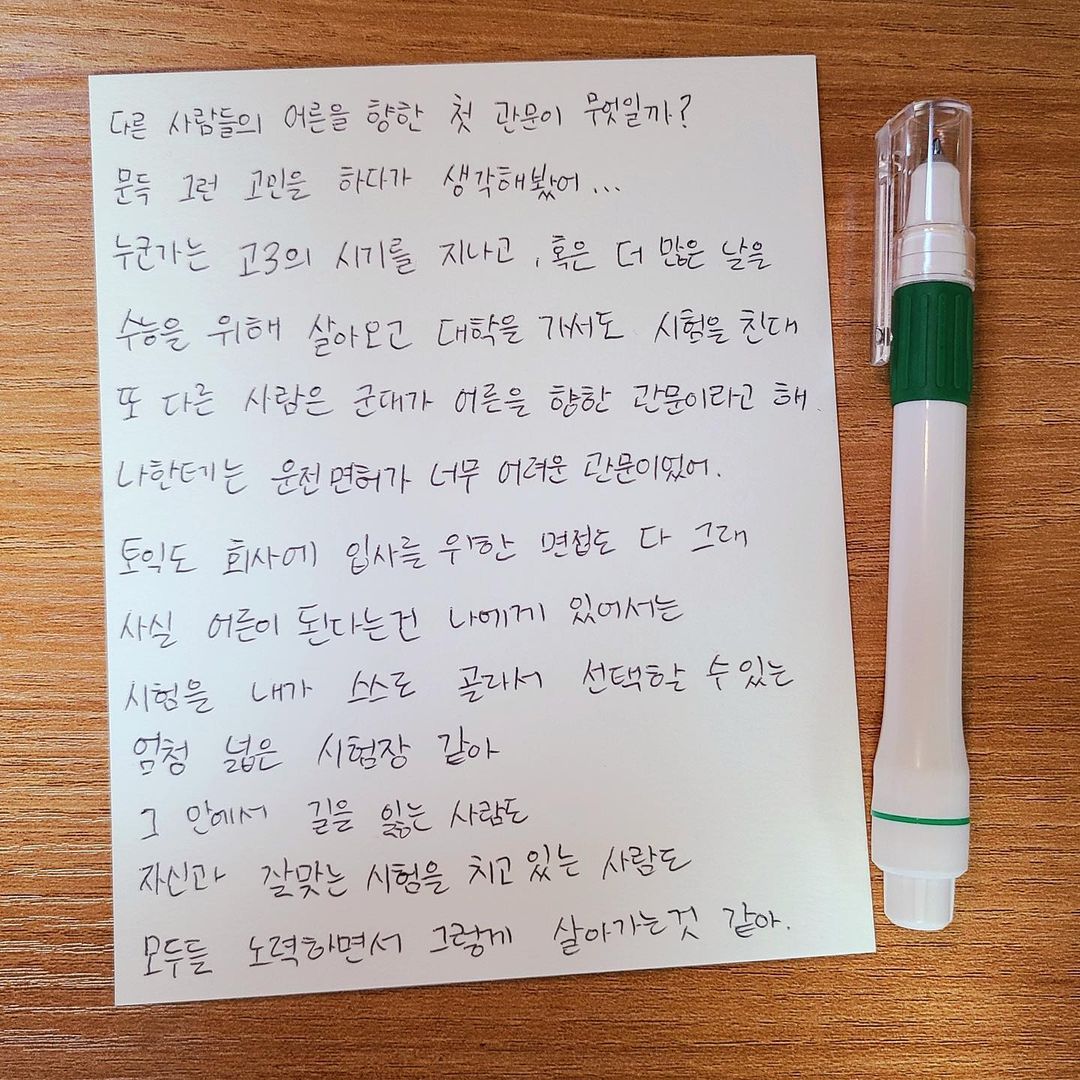 다른 사람들의 어른을 향한 첫 관문이 무엇일까?
문득 그런 고민을 하다가 생각해봤어...
누군가는 고3의 시기를 지나고, 혹은 더 많은 날을
수능을 위해 살아오고 대학을 가서도 시험을 친대
또 다른 사람은 군대가 어른을 향한 관문이라고 해.
나한테는 운전면허가 너무 어려운 관문이었어.
토익도 회사에 입사를 위한 면접도 다 그래
사실 어른이 된다는건 나에게 있어서는
시험을 내가 스스로 골라서 선택할 수 있는
엄청 넓은 시험장 같아
그 안에서 길을 잃는 사람도
자신과 잘맞는 시험을 치고 있는 사람도
모두들 노력하면서 그렇게 살아가는것 같아.